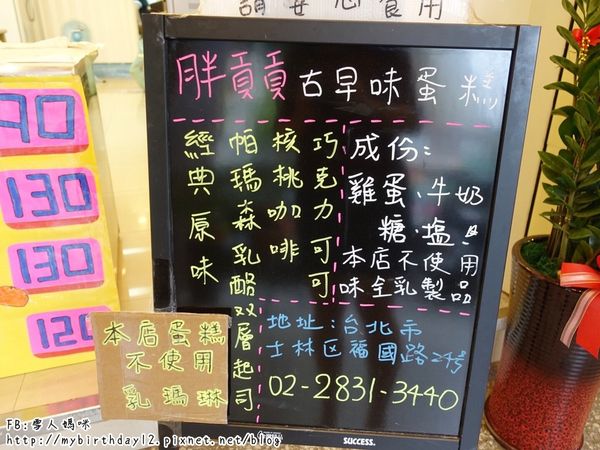 請安心食用
胖貢貢古早味蛋糕
經典原味
帕瑪森乳酪双層起司
核桃咖啡
巧克力可可
成份:
雞蛋、牛奶
糖、塩
本店不使用
味全乳製品
地址:台北市
士林区福國路24号
02-2831-3440
本店蛋糕
不使用
乳瑪琳
90
130
130
120
SUCCESS.
FB:雪人媽咪
http://mybirthday12.pixnet.net/blog